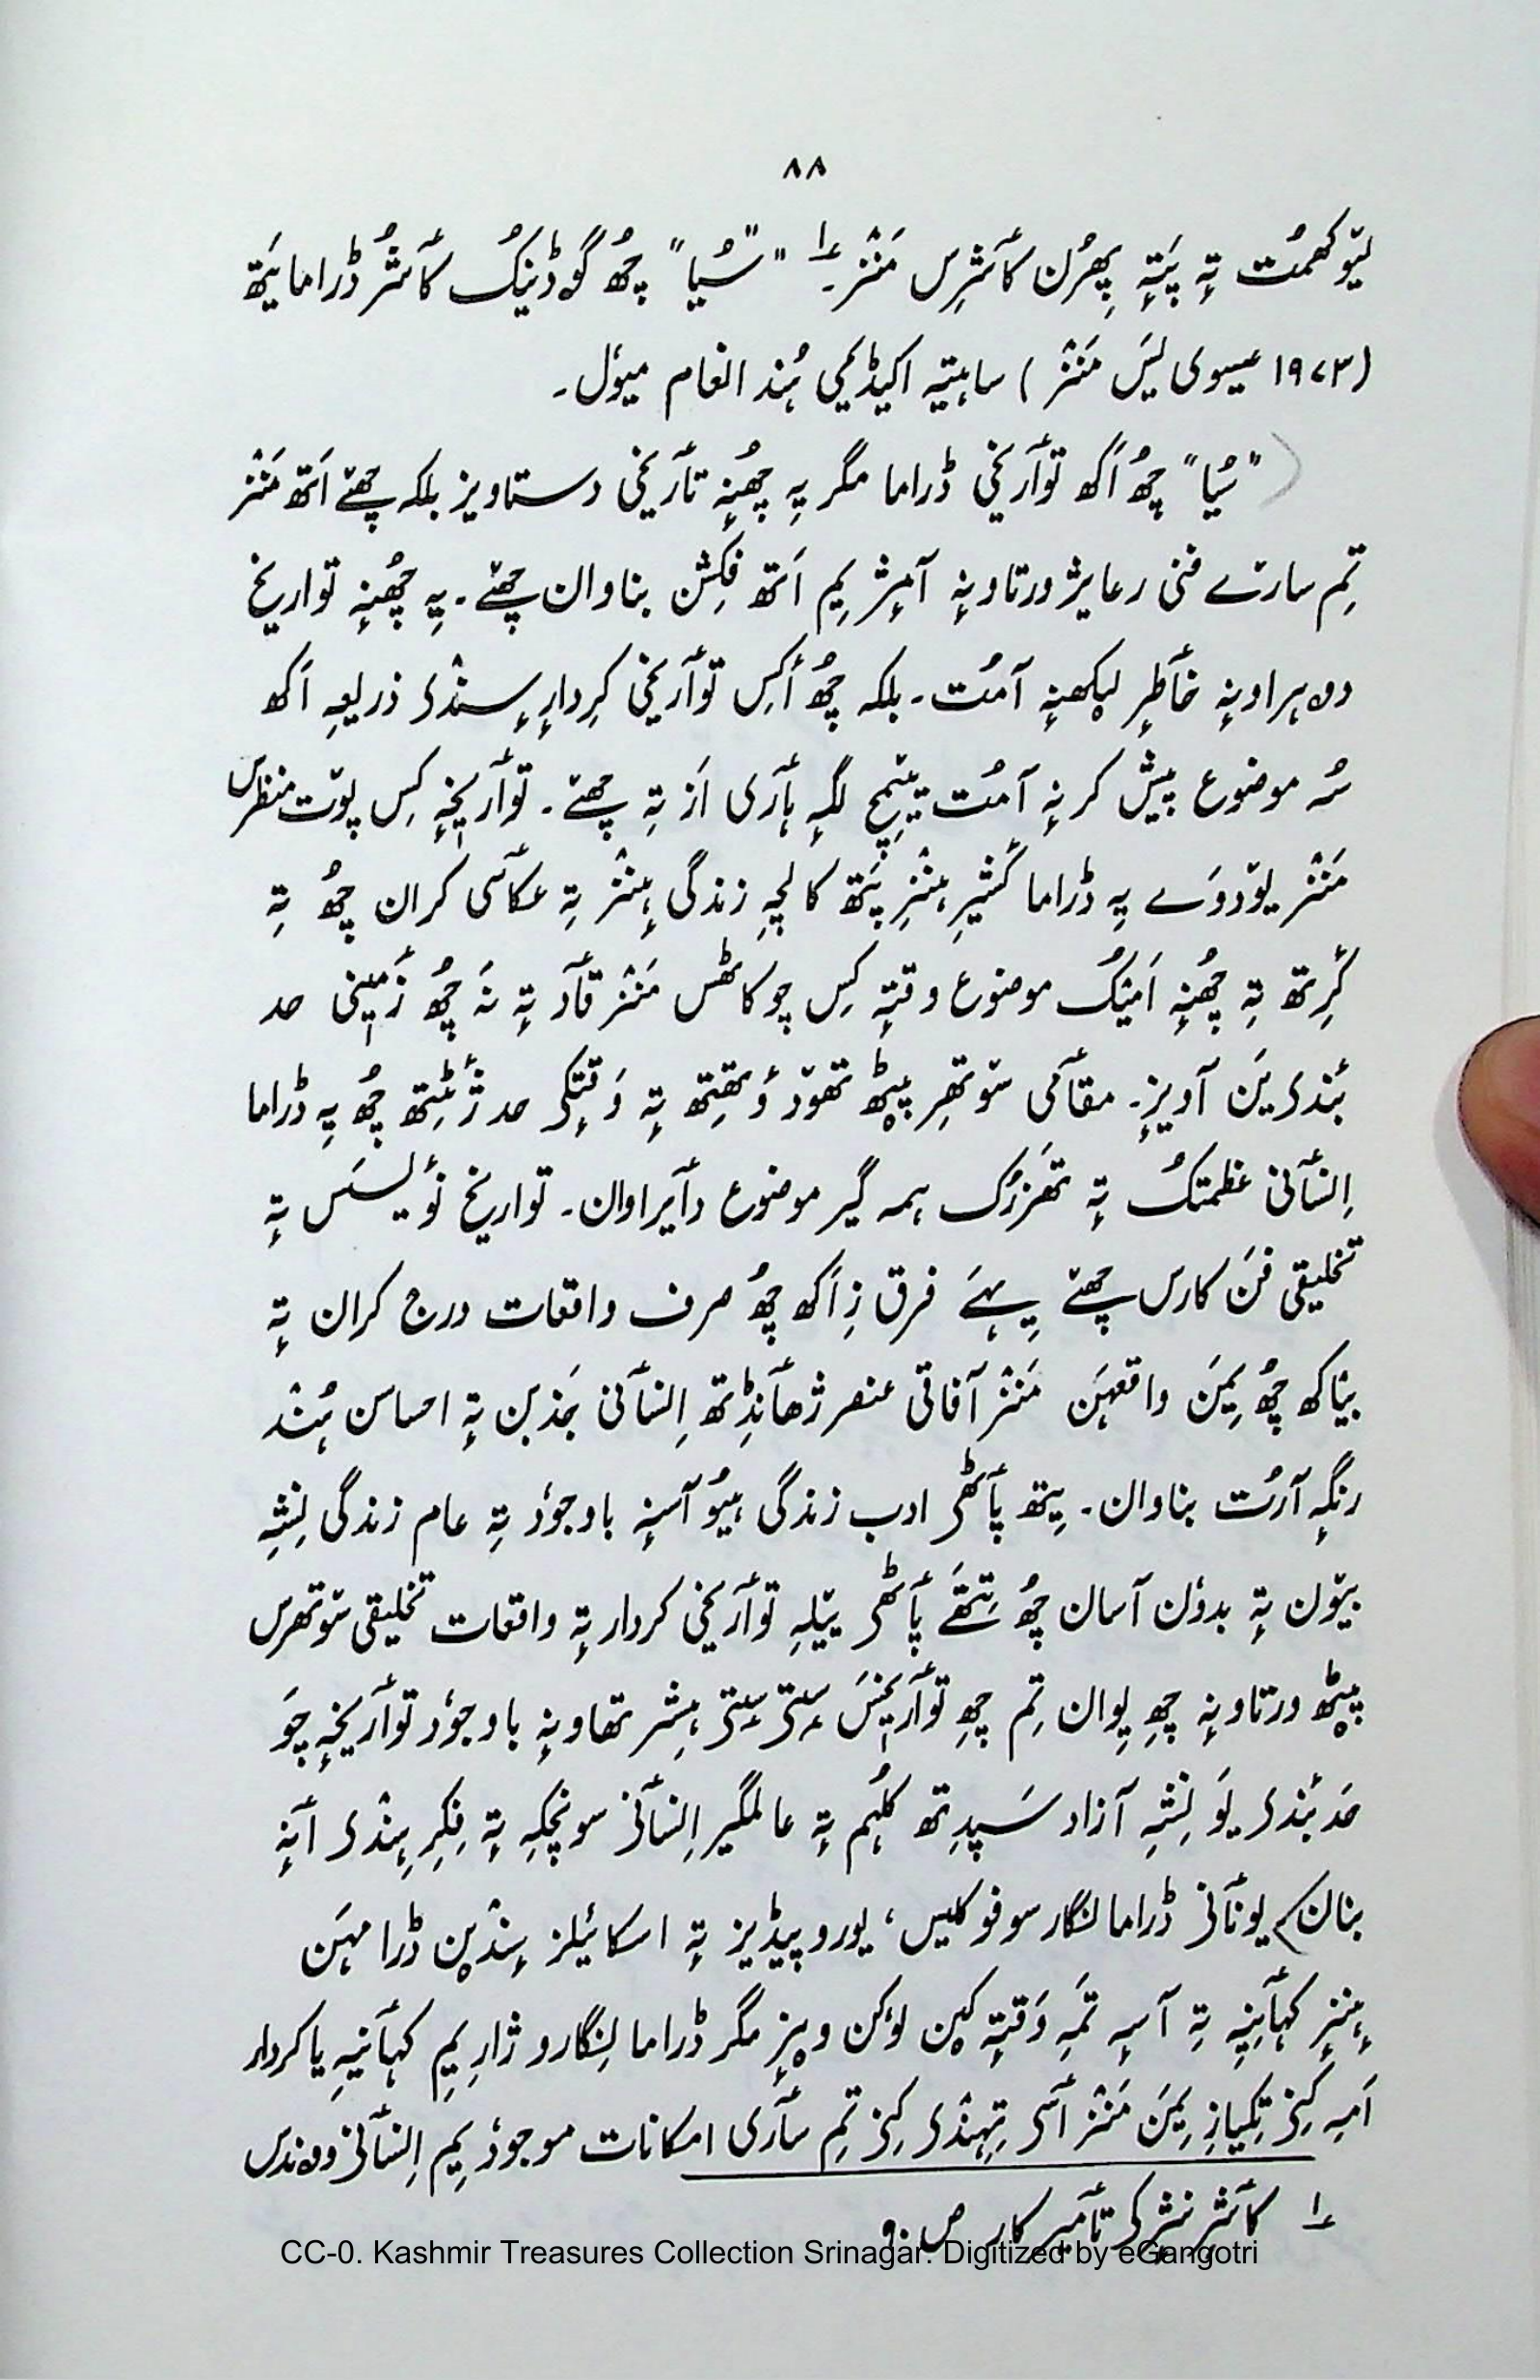 ۸۸
لیۆکھمُت تہٕ پَتہٕ پھِرُن کٲشرِس مَنٛز۔ ؎۱ "سُیا" چھُ گۄڈنیُک کٲشُر ڈراما یَتھ
(۱۹۷۳ عیسوی یَس مَنٛز) ساہتیہ اکیڈیمی ہُند انعام میوٗل۔
"سُیا" چھُ اَکھ توٲریٖخی ڈراما مگر یہِ چھُنہٕ تٲریٖخی دستاویز بلکہ چھےٚ اَتھ مَنٛز
تِم سارےٚ فنی رعایژ ورتاونہٕ آمٕژ یِم اَتھ فِکشن بناوان چھےٚ۔ یہِ چھُنہٕ تواریخ
دہراونہٕ خٲطرٕ لیکھنہٕ آمُت۔ بلکہ چھُ أکِس توٲریٖخی کِردارٕ سٕنٛدی ذریعہِ اَکھ
سُہ موضوع پیش کرنہٕ آمُت یێمِچ لگہٕ ہٲری اَز تہِ چھےٚ۔ توٲریٖخہٕ کِس پوٚت منظرس
مَنٛز یوٚدوَے یہِ ڈراما کٔشیٖرِ ہٕنٛزِ پَتھ کالچہِ زندگی ہٕنٛز تہِ عکٲسی کران چھُ تہِ
کٔرِتھ تہِ چھُنہٕ اَمیُک موضوع وقتہٕ کِس چوکاٹھس مَنٛز قٲد تہٕ نَہ چھُ زٔمیٖنی حد
بٔندی یَن آویزٕ۔ مقٲمی سۆتھرِ پیٹھ تھوٚد وٕتھِتھ تہٕ وَقتٕکی حد ژٔٹِتھ چھُ یہِ ڈراما
اِنسٲنی عظمتُک تہٕ تھزرُک ہمہ گیر موضوع دٲیراوان۔ تواریخ نٔویسَس تہٕ
تخلیقی فن کارس چھےٚ یِہَے فرق زِ اَکھ چھُ صرف واقعات درج کران تہٕ
بیاکھ چھُ یِمَن واقعہَن مَنٛز آفاقی عنصر ژھٲنڈِتھ اِنسٲنی جَذبن تہٕ احساسن ہُنٛد
رنگہٕ آرُت بناوان۔ یِتھ پٲٹھی ادب زندگی ہیُو آسنہٕ باوجوٗد تہِ عام زندگی نِشہِ
بیوٚن تہٕ بدوٗن آسان چھُ تِتھَے پٲٹھی یێلہِ توٲریٖخی کردار تہٕ واقعات تخلیقی سۆتھرس
پیٹھ ورتاونہٕ چھِ یِوان تِم چھِ توٲریٖخَس سٕتی سٕتی ہِشر تھاونہٕ باوجوٗد توٲریٖخہِ چَو
حَد بٔندی یَو نِشہِ آزاد سَپدِتھ کلہُم تہٕ عالمگیر اِنسٲنی سونچکہِ تہٕ فِکرِ ہٕنٛدی أنہٕ
بنان۔ یوٗنٲنی ڈراما نگار سوفوکلیس، یوروپیڈیز تہٕ اسکائیلز سٕنٛدین ڈرامہَن
ہٕنٛزٕ کہٲنِیہٕ تہِ آسہٕ تمَہِ وَقتہٕ کین لوٗکن ویزٕ مگر ڈراما نِگارو ژارِ یِم کہٲنیہِ یا کردار
اَمہِ کِنی تِکیازِ یِمَن مَنٛز ٲسی تِہنٛدی کِنی تِم سٲری امکانات موجوٗد یِم اِنسٲنی وۄندس
؎۱ کٲشرِ نثرٕکی تٲمیر کار ص ۹۰
CC-0. Kashmir Treasures Collection Srinagar. Digitized by eGangotri